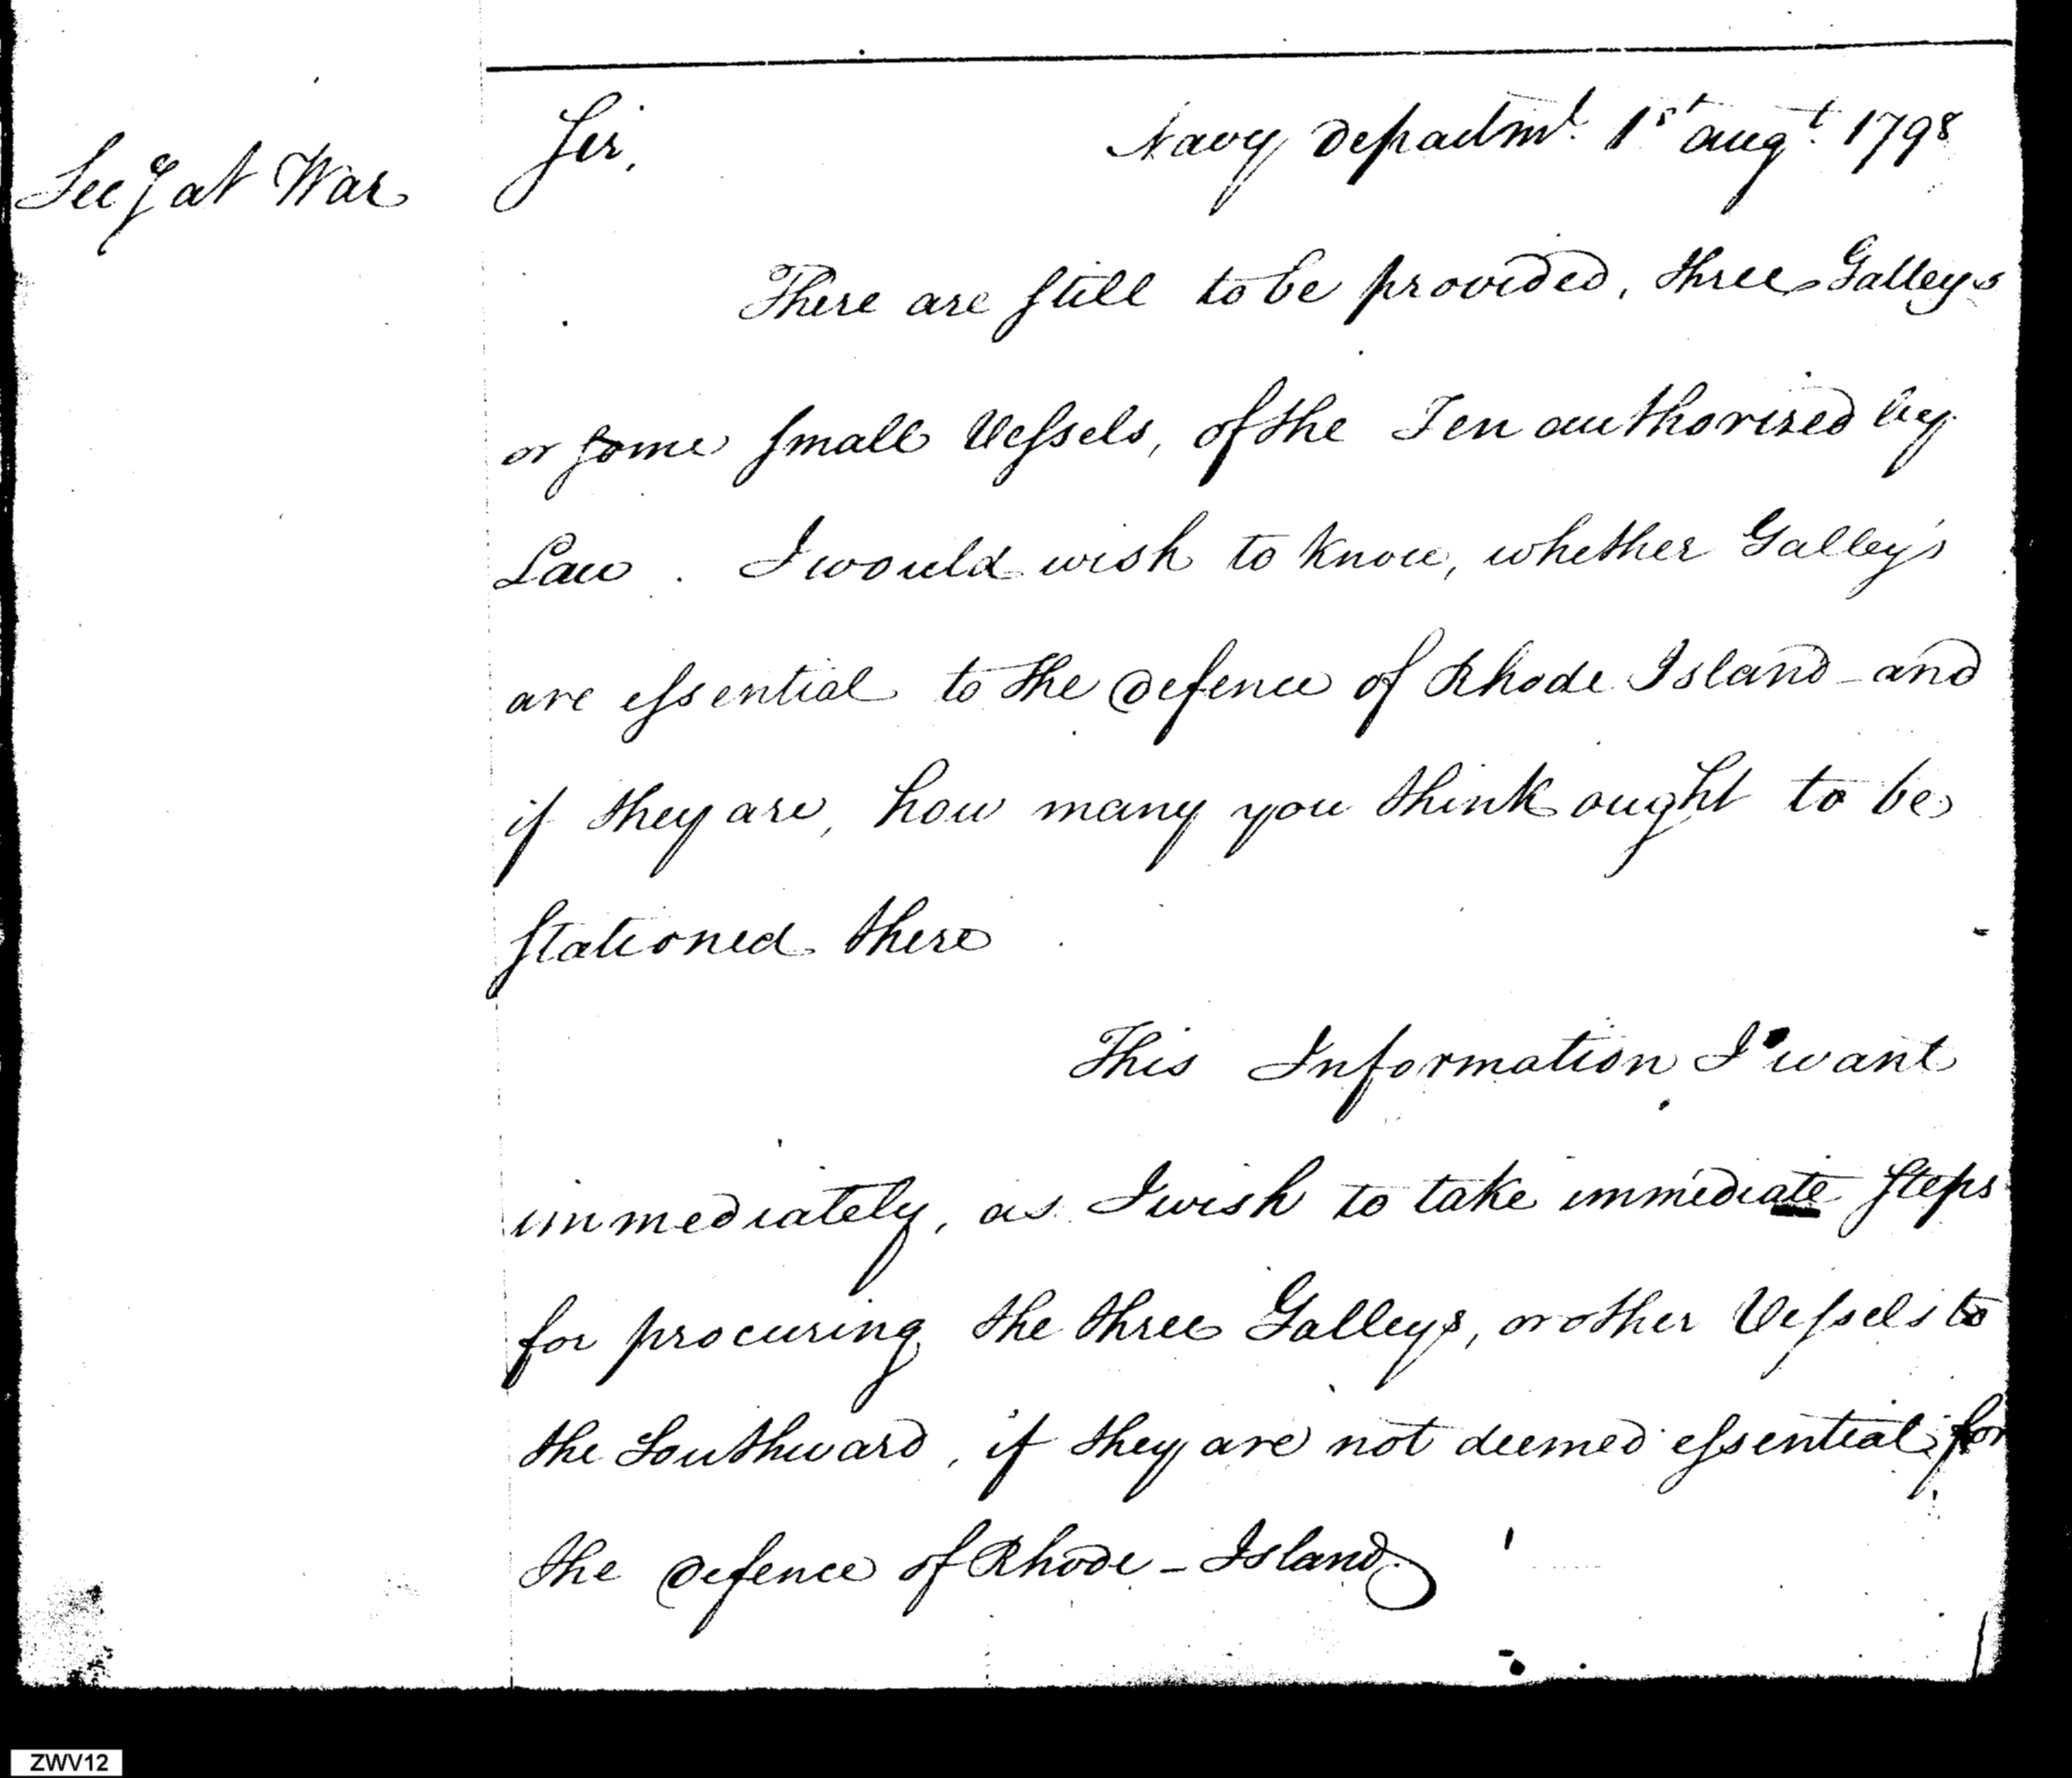 Secy at War
Sir, Navy Departmt. 1st augt. 1798
There are still to be provided, three Galleys
or some small Vessels, of the Ten authorized by
Law. I would wish to know, whether Galleys
are essential to the defence of Rhode Island - and
if they are, how many you think ought to be
stationed there
This Information I want
immediately, as I wish to take immediate steps
for procuring the three Galleys, or other Vessels to
the Southward, if they are not deemed essential for
the Defence of Rhode-Island
ZWV12